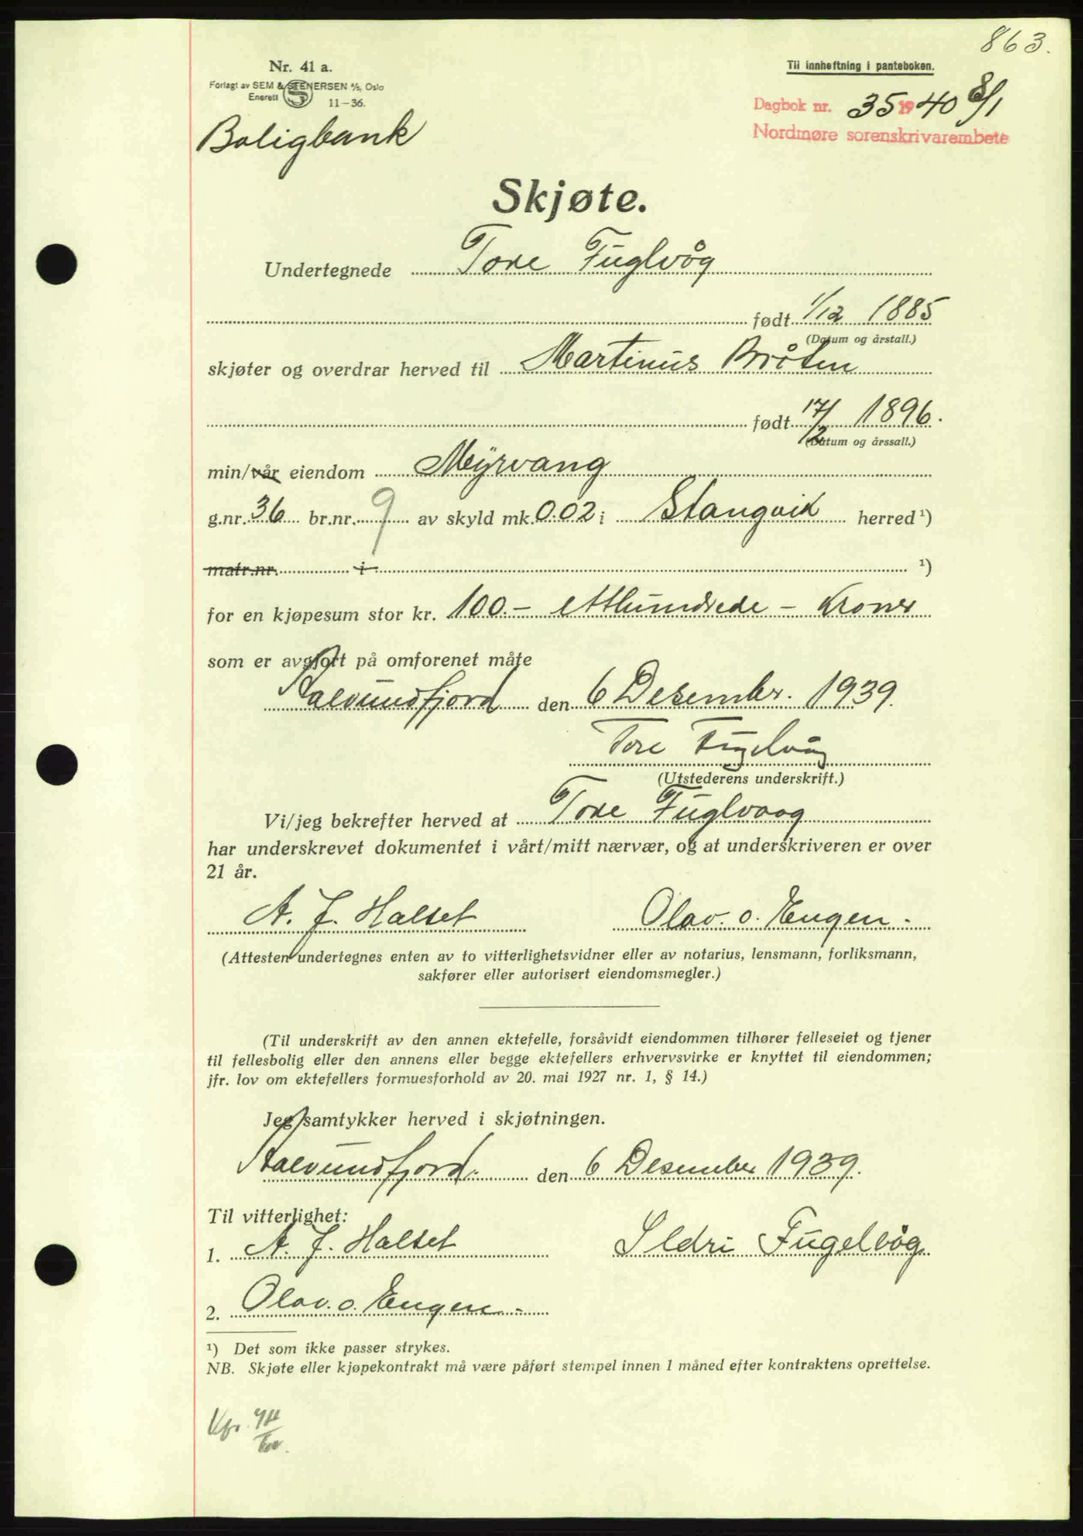 863.
Nr. 41 a.
Forlagt av SEM & STENERSEN A/S, Oslo
Enerett S 11-36.
Til innheftning i panteboken.
Dagbok nr. 35 1940 8/1
Nordmøre sorenskrivarembete
Boligbank
Skjøte.
Undertegnede Tore Fuglvåg
født 1/12 1885
(Datum og årstall.)
skjøter og overdrar herved til Martinus Bråten
født 17/2 1896.
(Datum og årssall.)
min/vår eiendom Myrvang
g.nr. 36 br.nr. 9 av skyld mk. 0.02 i Stangvik herred ¹)
matr.nr. i ¹)
for en kjøpesum stor kr. 100.- etthundrede - kroner
som er avgjort på omforenet måte
Aalvundfjord den 6 Desember. 1939.
Tore Fugelvåg
(Utstederens underskrift.)
Vi/jeg bekrefter herved at Tore Fuglvaag
har underskrevet dokumentet i vårt/mitt nærvær, og at underskriveren er over
21 år.
A. J. Halset Olav. O. Engen.
(Attesten undertegnes enten av to vitterlighetsvidner eller av notarius, lensmann, forliksmann,
sakfører eller autorisert eiendomsmegler.)
(Til underskrift av den annen ektefelle, forsåvidt eiendommen tilhører felleseiet og tjener
til fellesbolig eller den annens eller begge ektefellers erhvervsvirke er knyttet til eiendommen;
jfr. lov om ektefellers formuesforhold av 20. mai 1927 nr. 1, § 14.)
Jeg samtykker herved i skjøtningen.
Aalvundfjord. den 6 Desember 1939.
Til vitterlighet:
1. A. J. Halset Ildri Fugelvåg
2. Olav. O. Engen.
¹) Det som ikke passer strykes.
NB. Skjøte eller kjøpekontrakt må være påført stempel innen 1 måned efter kontraktens oprettelse.